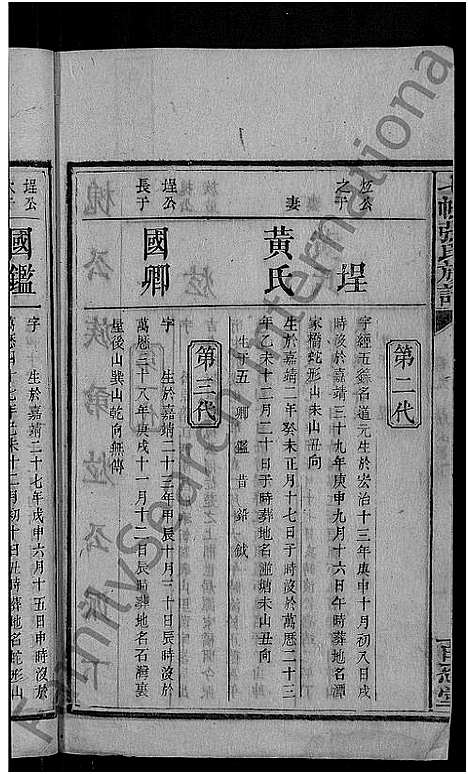 張氏族譜
第二代
炡公
之子
埕
字經五鄉名道元生於宏治十三年庚申十月初八日戌
時沒於嘉靖三十九年庚申九月十六日午時葬地名潭
家橋蛇形山未山丑向
妻
黃氏
生於嘉靖二年癸未正月十七日子時沒於萬歷二十三
年乙未十二月二十日子時葬地名 塘未山丑向
生子五 卿 鑑 昔 鉛 鉞
第三代
埕公
長子
國卿
字 生於嘉靖二十三年甲辰十月三十日辰時沒於
萬歷三十八年庚戌十一月十二日辰時葬地名石灣裏
屋後山巽山乾向無傳
埕公
次子
國鑑
字 生於嘉靖二十七年戊申六月十五日申時沒於
FamilySearch International